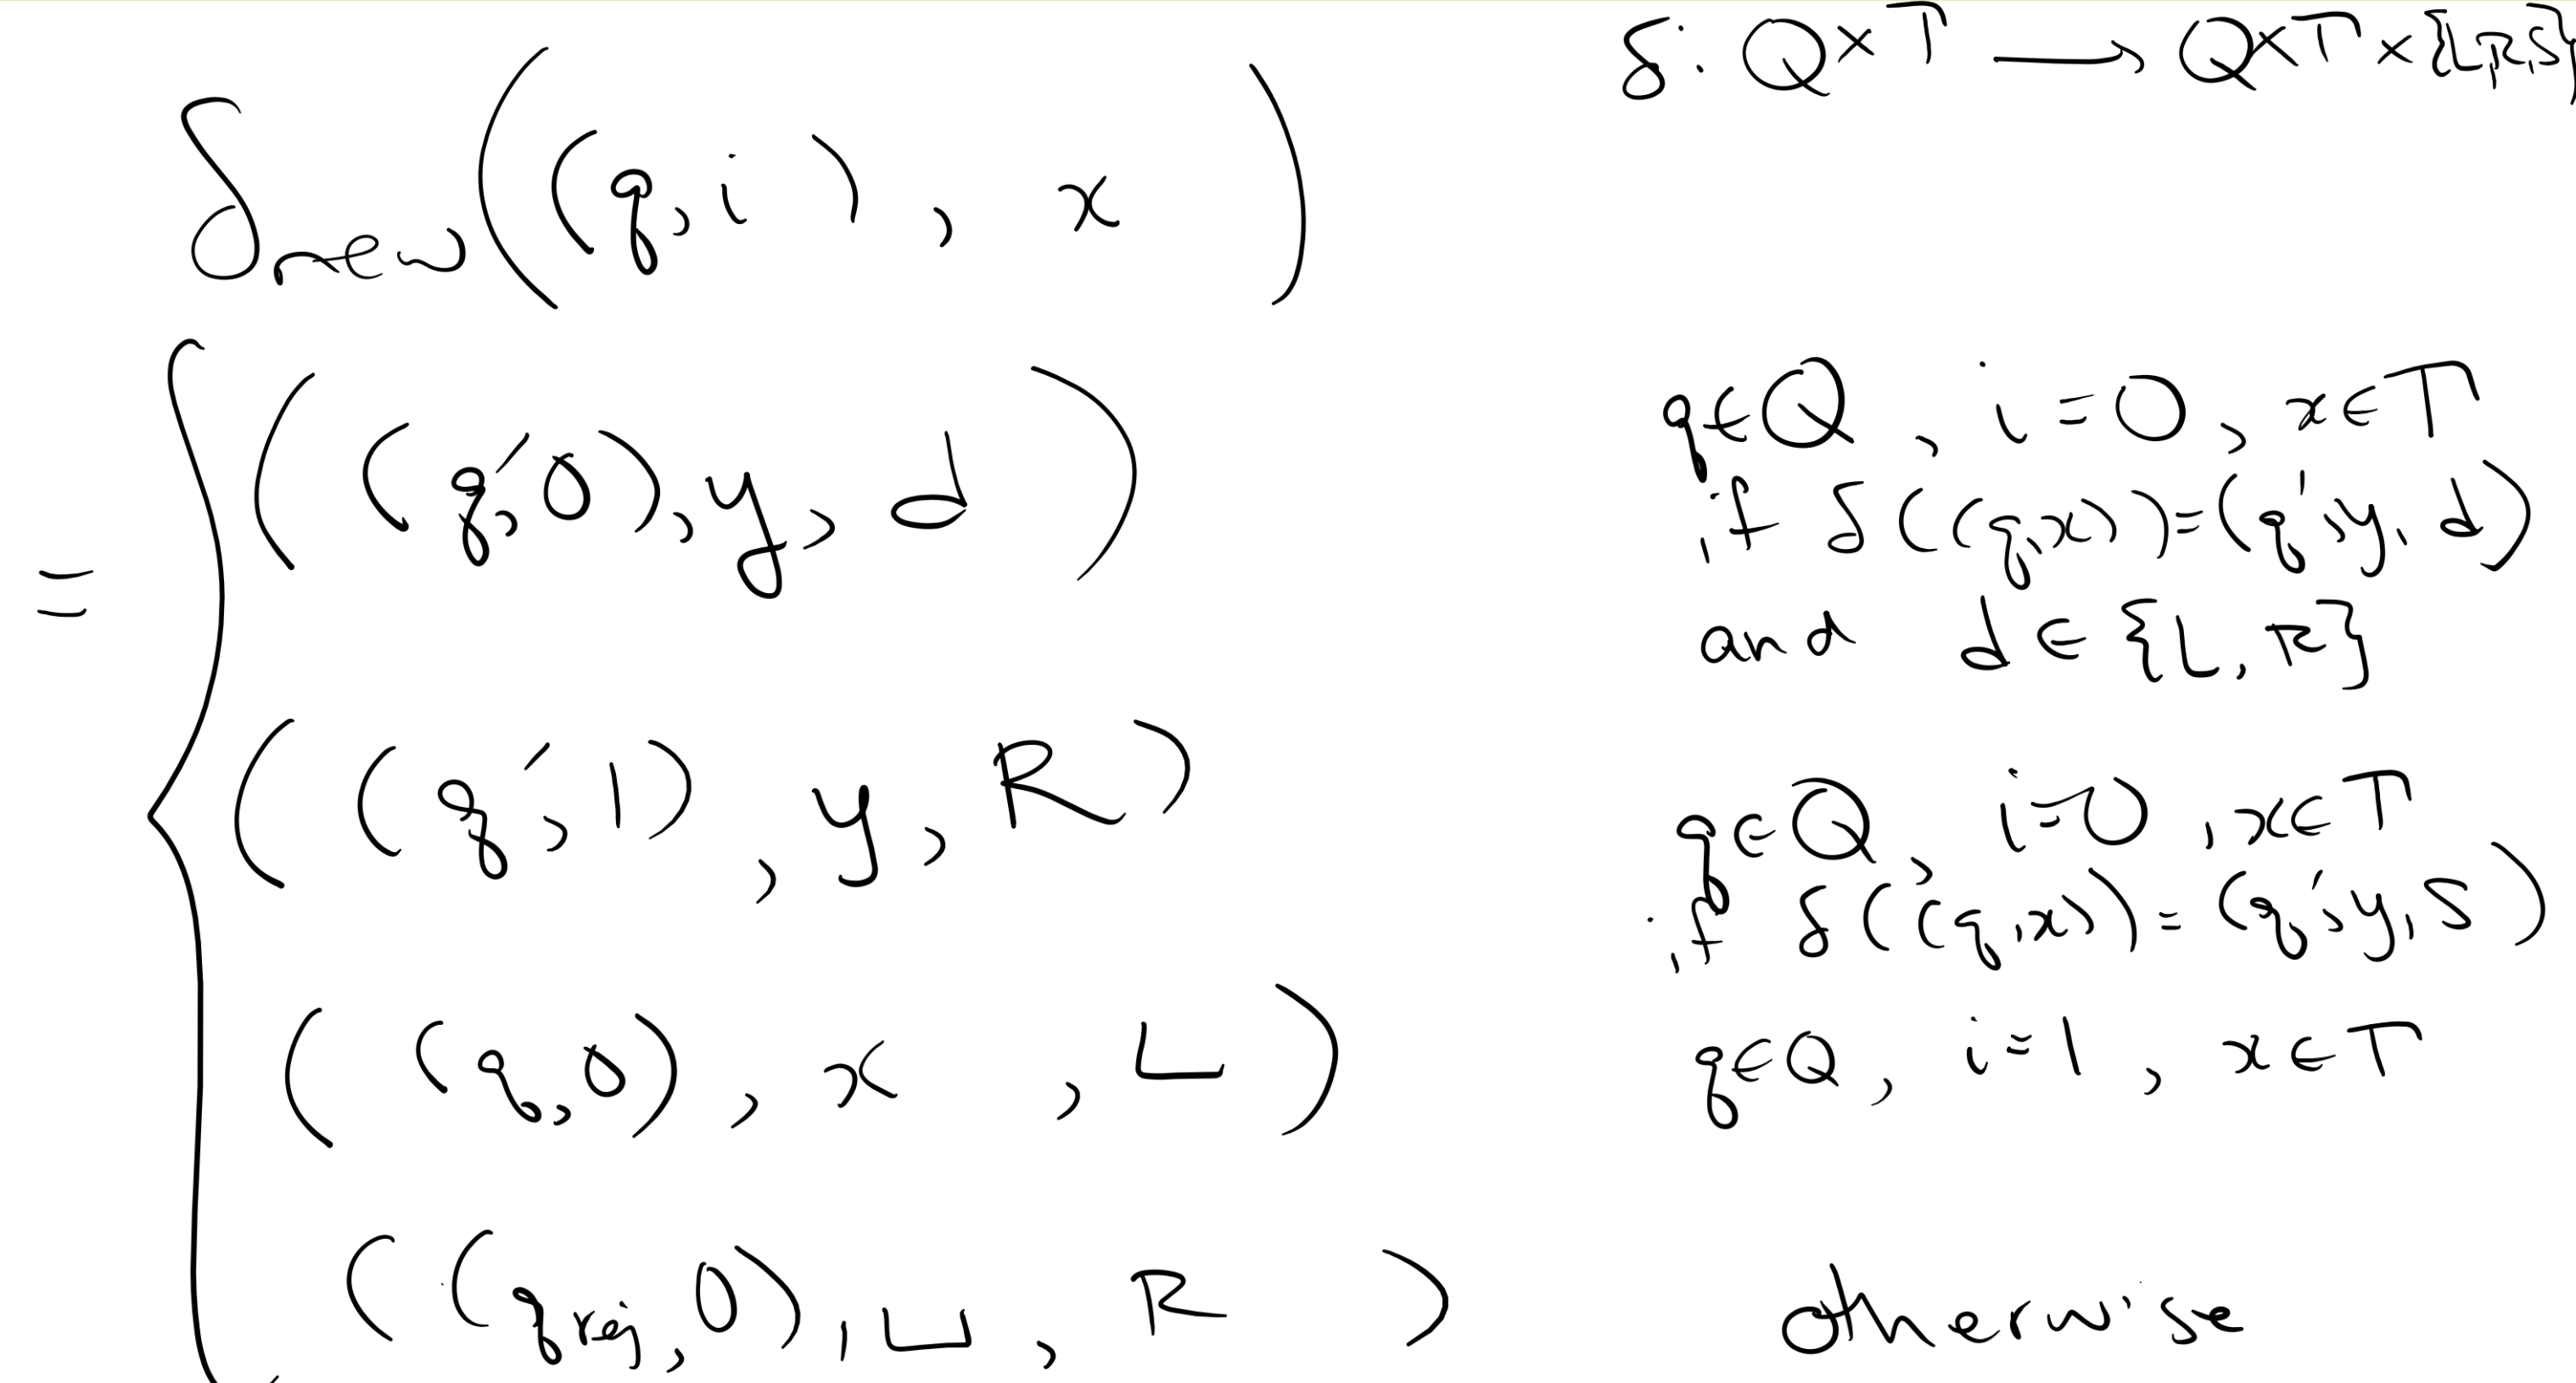 δ: Q×T → Q×T×{L,R,S}
δ_new((q,i), x)
= { ((q',0), y, d) q∈Q, i=0, x∈T
if δ((q,x))=(q',y,d)
and d∈{L,R}
((q',1), y, R) q∈Q, i=0, x∈T
if δ((q,x))=(q',y,S)
((q,0), x, L) q∈Q, i=1, x∈T
((q_rej,0), ⊔, R) otherwise